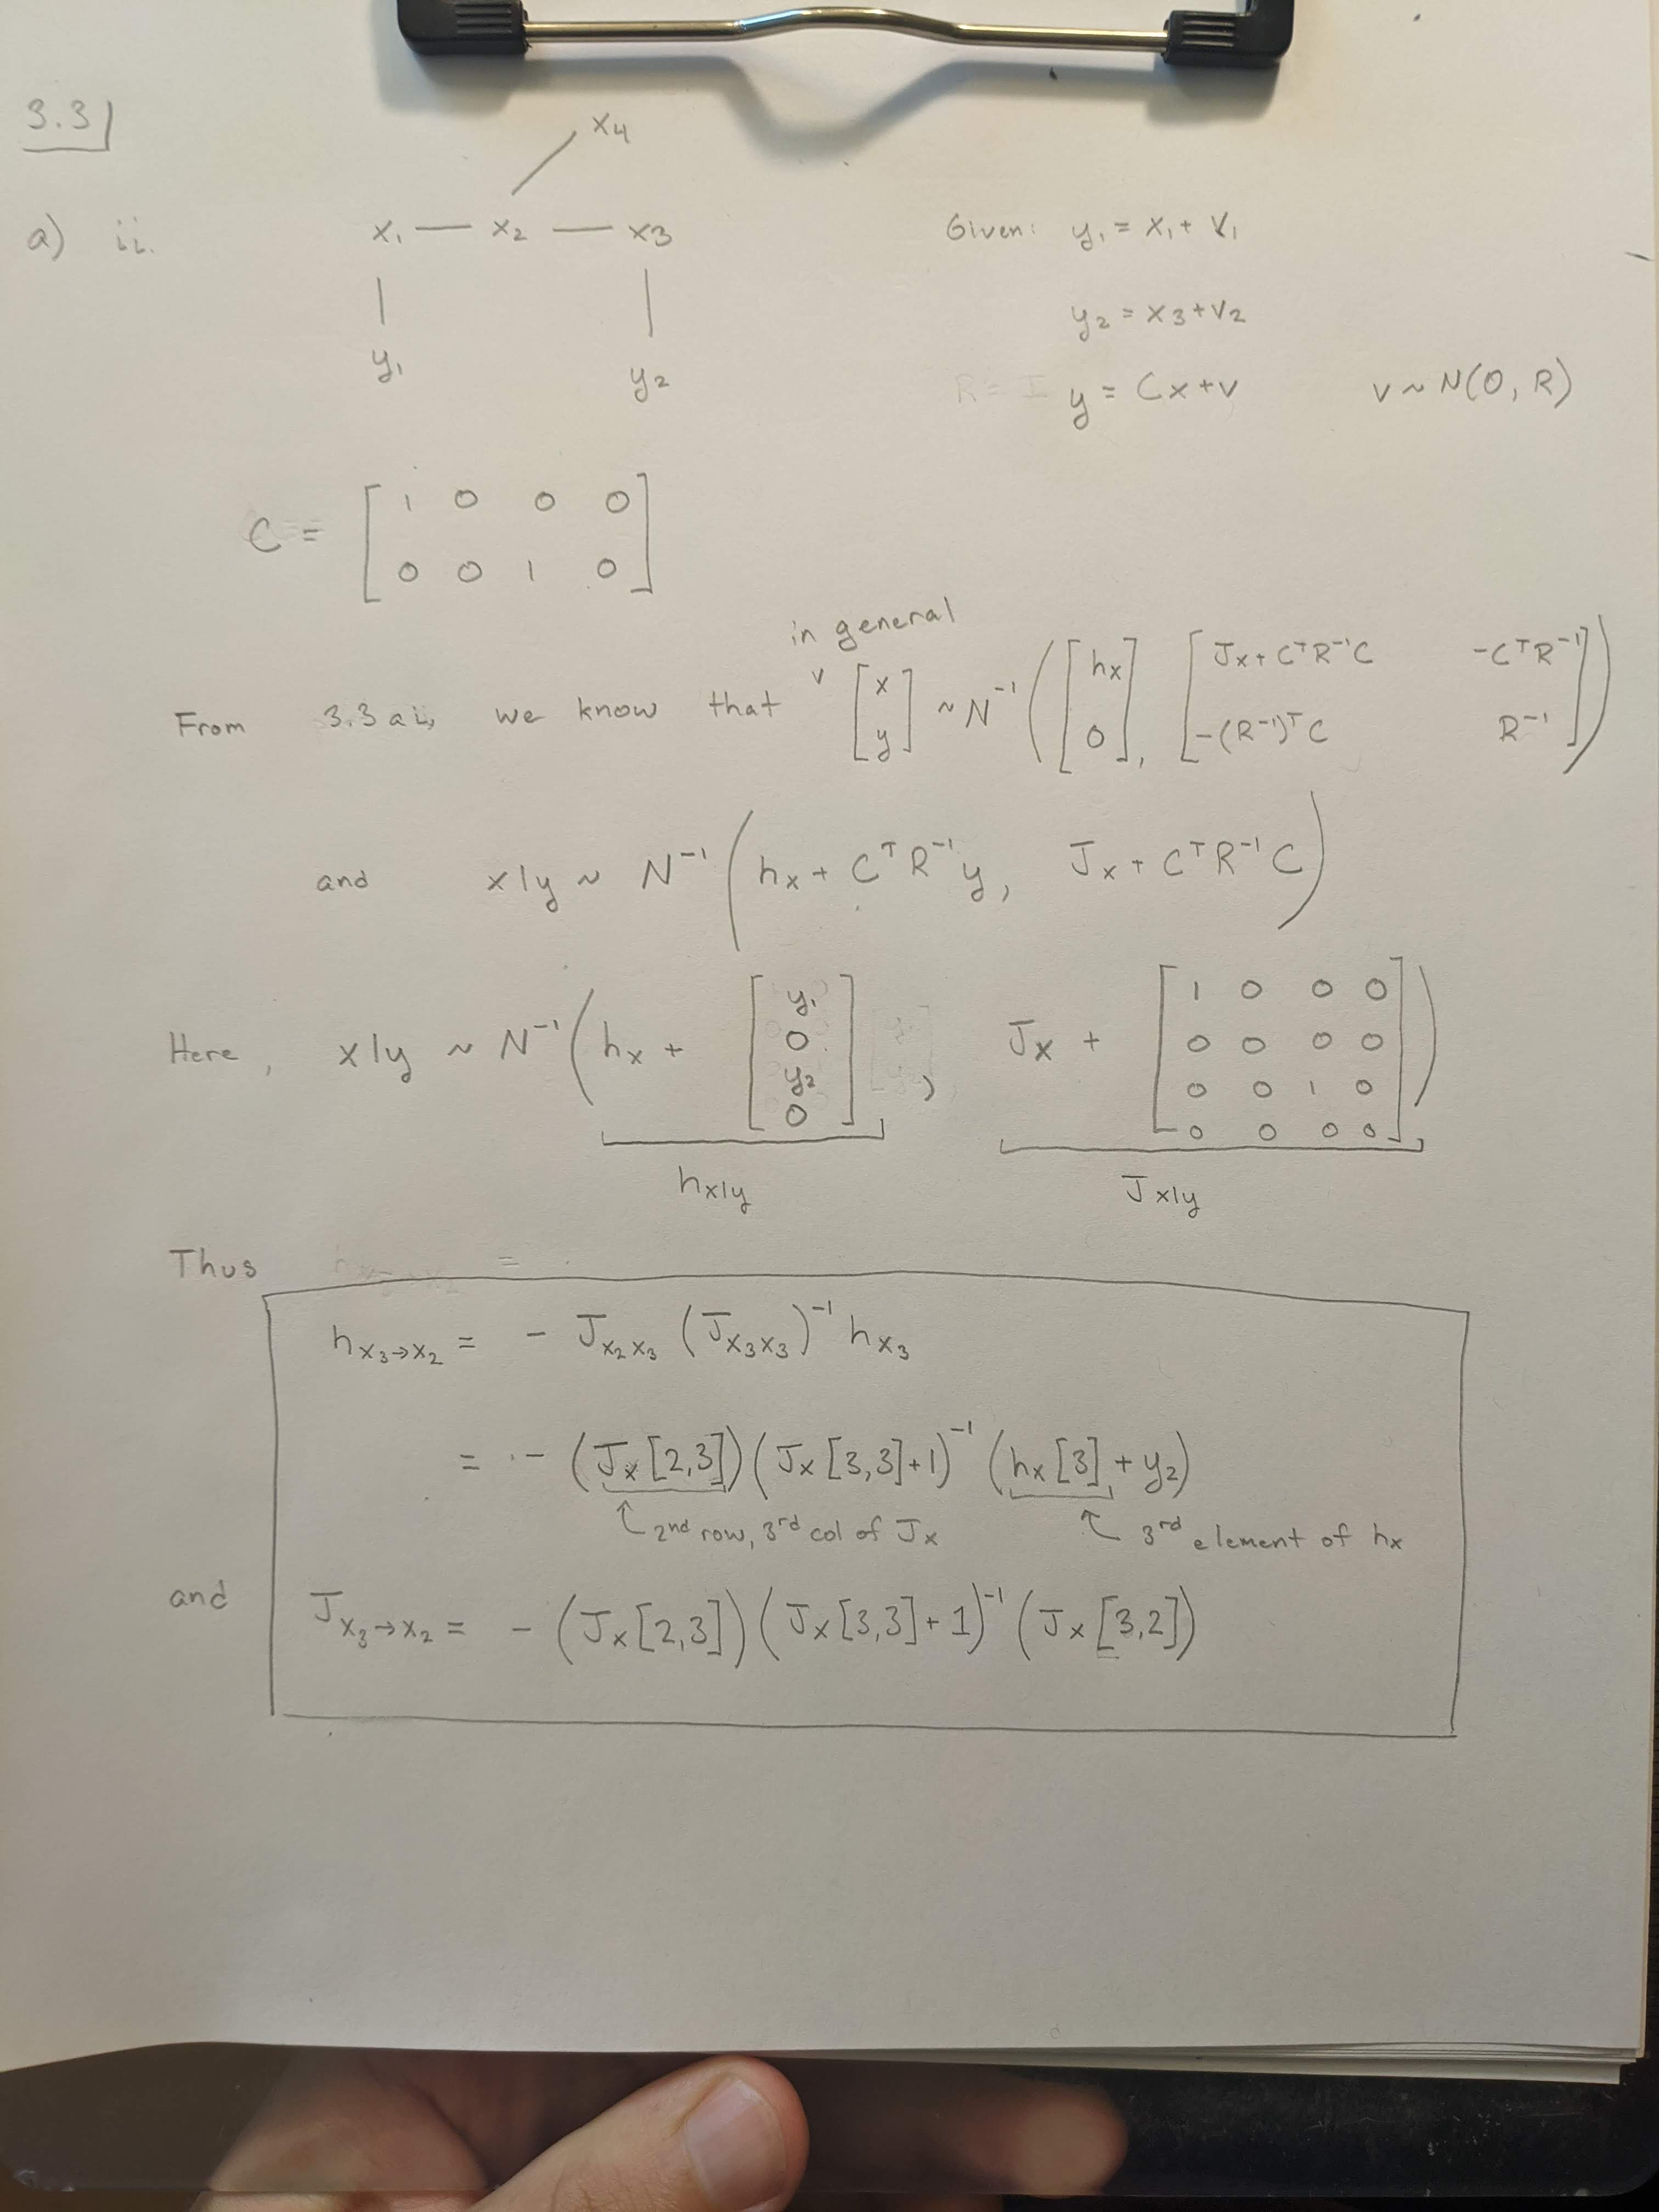 3.3
a) ii.
x₄
x₁ — x₂ — x₃
y₁ y₂
Given: y₁ = x₁ + v₁
y₂ = x₃ + v₂
R = I y = Cx + v v ~ N(0, R)
C = [1 0 0 0
0 0 1 0]
in general
From 3.3 a i, we know that ᵛ [x y] ~ N⁻¹([hₓ 0], [Jₓ + CᵀR⁻¹C -CᵀR⁻¹
-(R⁻¹)ᵀC R⁻¹])
and x|y ~ N⁻¹(hₓ + CᵀR⁻¹y, Jₓ + CᵀR⁻¹C)
Here, x|y ~ N⁻¹(hₓ + [y₁ 0 y₂ 0], Jₓ + [1 0 0 0
0 0 0 0
0 0 1 0
0 0 0 0])
h_x|y J_x|y
Thus
h_x₃→x₂ = - J_x₂x₃ (J_x₃x₃)⁻¹ h_x₃
= - (Jₓ[2,3])(Jₓ[3,3]+1)⁻¹ (hₓ[3] + y₂)
↑ 2nd row, 3rd col of Jₓ ↑ 3rd element of hₓ
and J_x₃→x₂ = - (Jₓ[2,3])(Jₓ[3,3]+1)⁻¹(Jₓ[3,2])